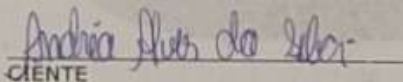 Andréa Alves da Silva
CIENTE